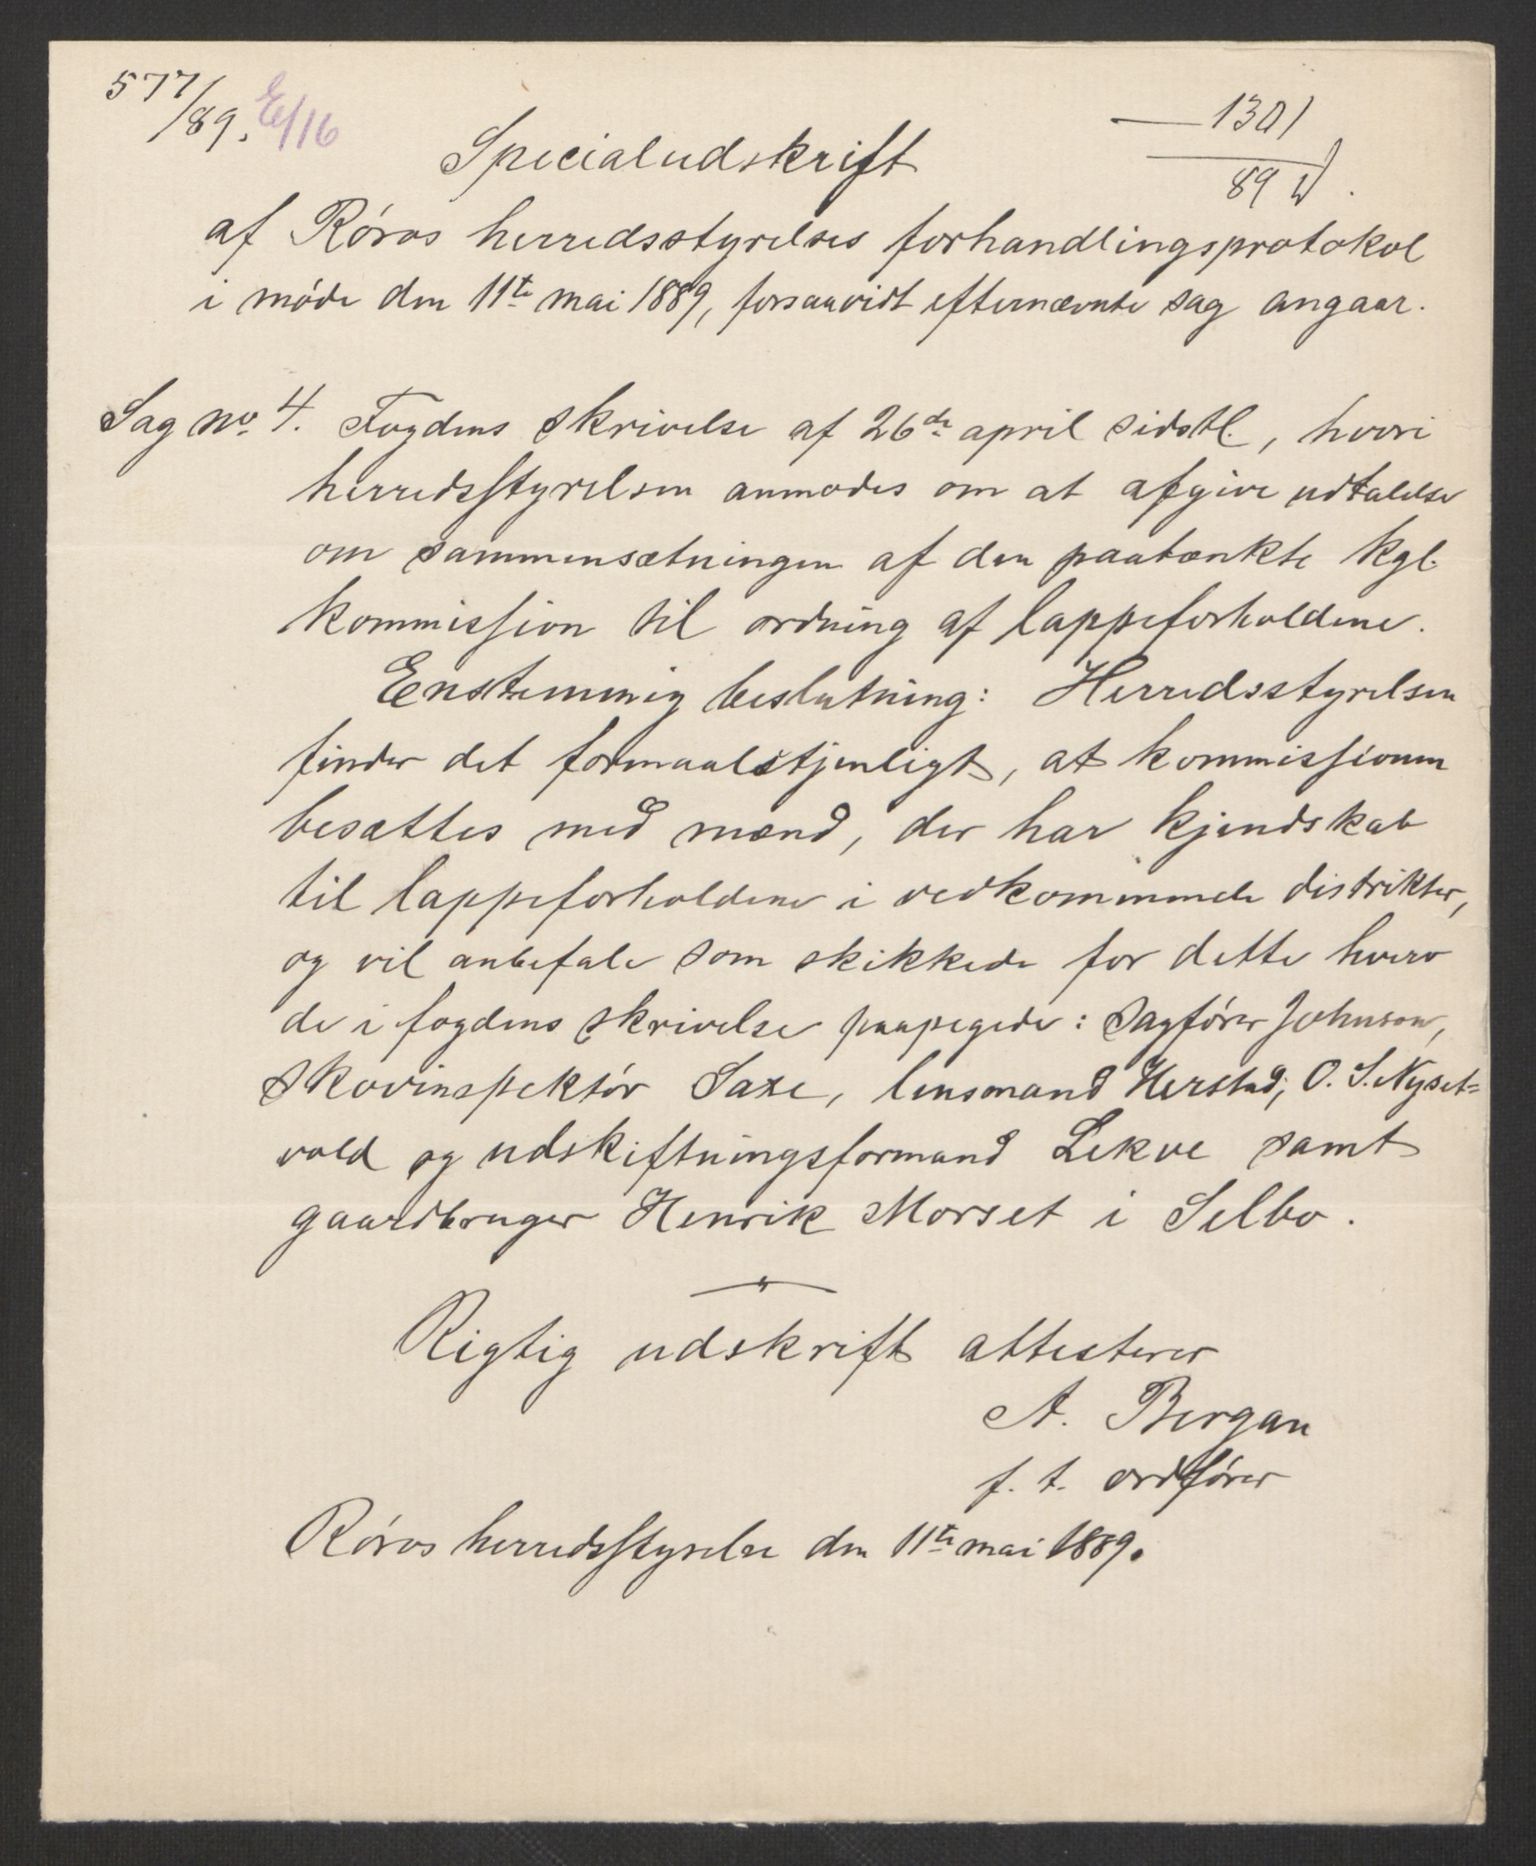 577/89. E/16
1301
89
Specialudskrift
af Røros herredsstyrelses forhandlingsprotokol
i møde den 11te mai 1889, forsaavidt efternævnte sag angaar.
Sag no. 4. Fogdens skrivelse af 26de april sidstl., hvori
herredsstyrelsen anmodes om at afgive udtalelse
om sammensætningen af den paatænkte kgl.
kommission til ordning af lappeforholdene.
Enstemmig beslutning: Herredsstyrelsen
finder det formaalstjenligt, at kommissionen
besættes med mænd, der har kjendskab
til lappeforholdene i vedkommende distrikter,
og vil anbefale som skikkede for dette hverv
de i fogdens skrivelse paapegede: sagfører Johnson,
skovinspektør Saxe, lensmand Herstad, O. S. Nyset=
vold og udskiftningsformand Lekve samt
gaardbruger Henrik Morset i Selbo.
Rigtig udskrift attesterer
A. Bergan
f. t. ordfører
Røros herredsstyrelse den 11te mai 1889.